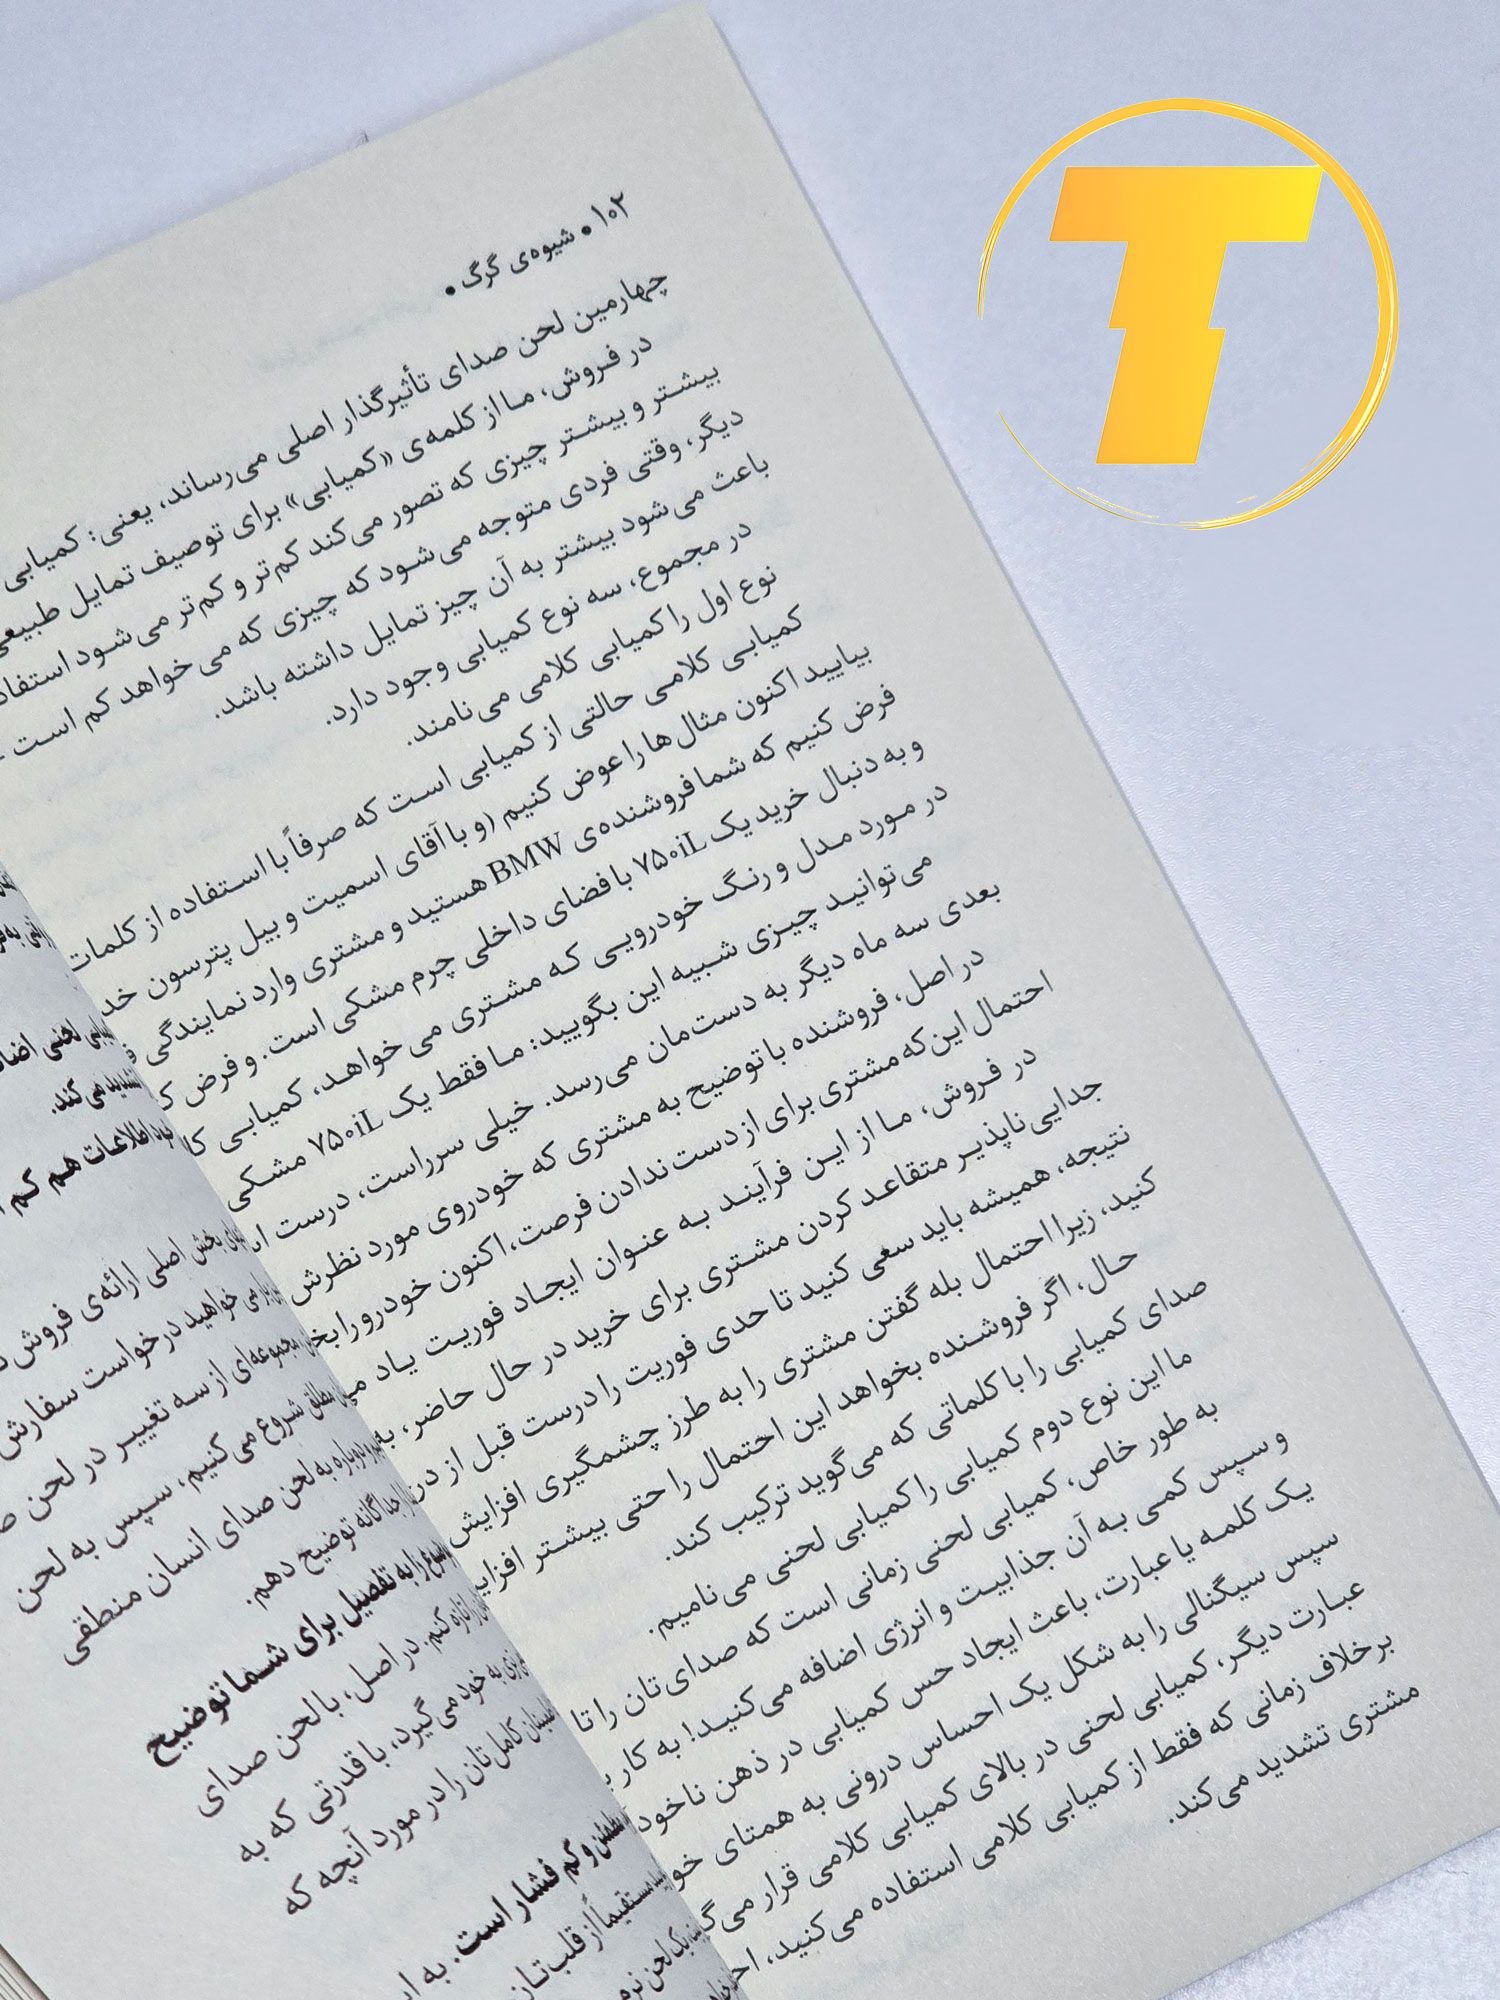 ۱۰۲ • شیوه‌ی گرگ •
چهارمین لحن صدای تأثیرگذار اصلی می‌رساند، یعنی: کمیابی
در فروش، ما از کلمه‌ی «کمیابی» برای توصیف تمایل طبیعی
بیشتر و بیشتر چیزی که تصور می‌کند کم‌تر و کم‌تر می‌شود
دیگر، وقتی فردی متوجه می‌شود که چیزی که می‌خواهد کم است
باعث می‌شود بیشتر به آن چیز تمایل داشته باشد.
در مجموع، سه نوع کمیابی وجود دارد.
نوع اول را کمیابی کلامی می‌نامند.
کمیابی کلامی حالتی از کمیابی است که صرفاً با استفاده از کلمات
بیایید اکنون مثال‌ها را عوض کنیم (و با آقای اسمیت و بیل پترسون
فرض کنیم که شما فروشنده‌ی BMW هستید و مشتری وارد نمایندگی
و به دنبال خرید یک ۷۵۰iL با فضای داخلی چرم مشکی است. و فرض
در مورد مدل و رنگ خودرویی که مشتری می‌خواهد، کمیابی
می‌توانید چیزی شبیه این بگویید: ما فقط یک ۷۵۰iL مشکی
بعدی سه ماه دیگر به دست‌مان می‌رسد. خیلی سرراست، درست
در اصل، فروشنده با توضیح به مشتری که خودروی مورد نظرش
احتمال این‌که مشتری برای از دست ندادن فرصت، اکنون خودرو را
در فروش، ما از این فرآیند به عنوان ایجاد فوریت یاد
جدایی‌ناپذیر متقاعد کردن مشتری برای خرید در حال حاضر،
نتیجه، همیشه باید سعی کنید تا حدی فوریت را درست قبل از
کنید، زیرا احتمال بله گفتن مشتری را به طرز چشمگیری افزایش
حال، اگر فروشنده بخواهد این احتمال را حتی بیشتر
صدای کمیابی را با کلماتی که می‌گوید ترکیب کند.
ما این نوع دوم کمیابی را کمیابی لحنی می‌نامیم.
به طور خاص، کمیابی لحنی زمانی است که صدای‌تان را تا
و سپس کمی به آن جذابیت و انرژی اضافه می‌کنید! به کار
یک کلمه یا عبارت، باعث ایجاد حس کمیابی در ذهن
سپس سیگنالی را به شکل یک احساس درونی به همتای
عبارت دیگر، کمیابی لحنی در بالای کمیابی کلامی قرار
برخلاف زمانی که فقط از کمیابی کلامی استفاده می‌کنید،
مشتری تشدید می‌کند.
لحنی
تشدید می‌کند.
اطلاعات هم کم
بخش اصلی ارائه‌ی فروش
می‌خواهید درخواست سفارش
مجموعه‌ای از سه تغییر در لحن
مطلق شروع می‌کنیم، سپس به لحن
دوباره به لحن صدای انسان منطقی
جداگانه توضیح دهم.
را به تفصیل برای شما توضیح
کنم. در اصل، با لحن صدای
به خود می‌گیرد، با قدرتی که به
کامل‌تان را در مورد آنچه که
و کم فشار است. به
مستقیماً از قلب‌تان
یک لحن نرم
T